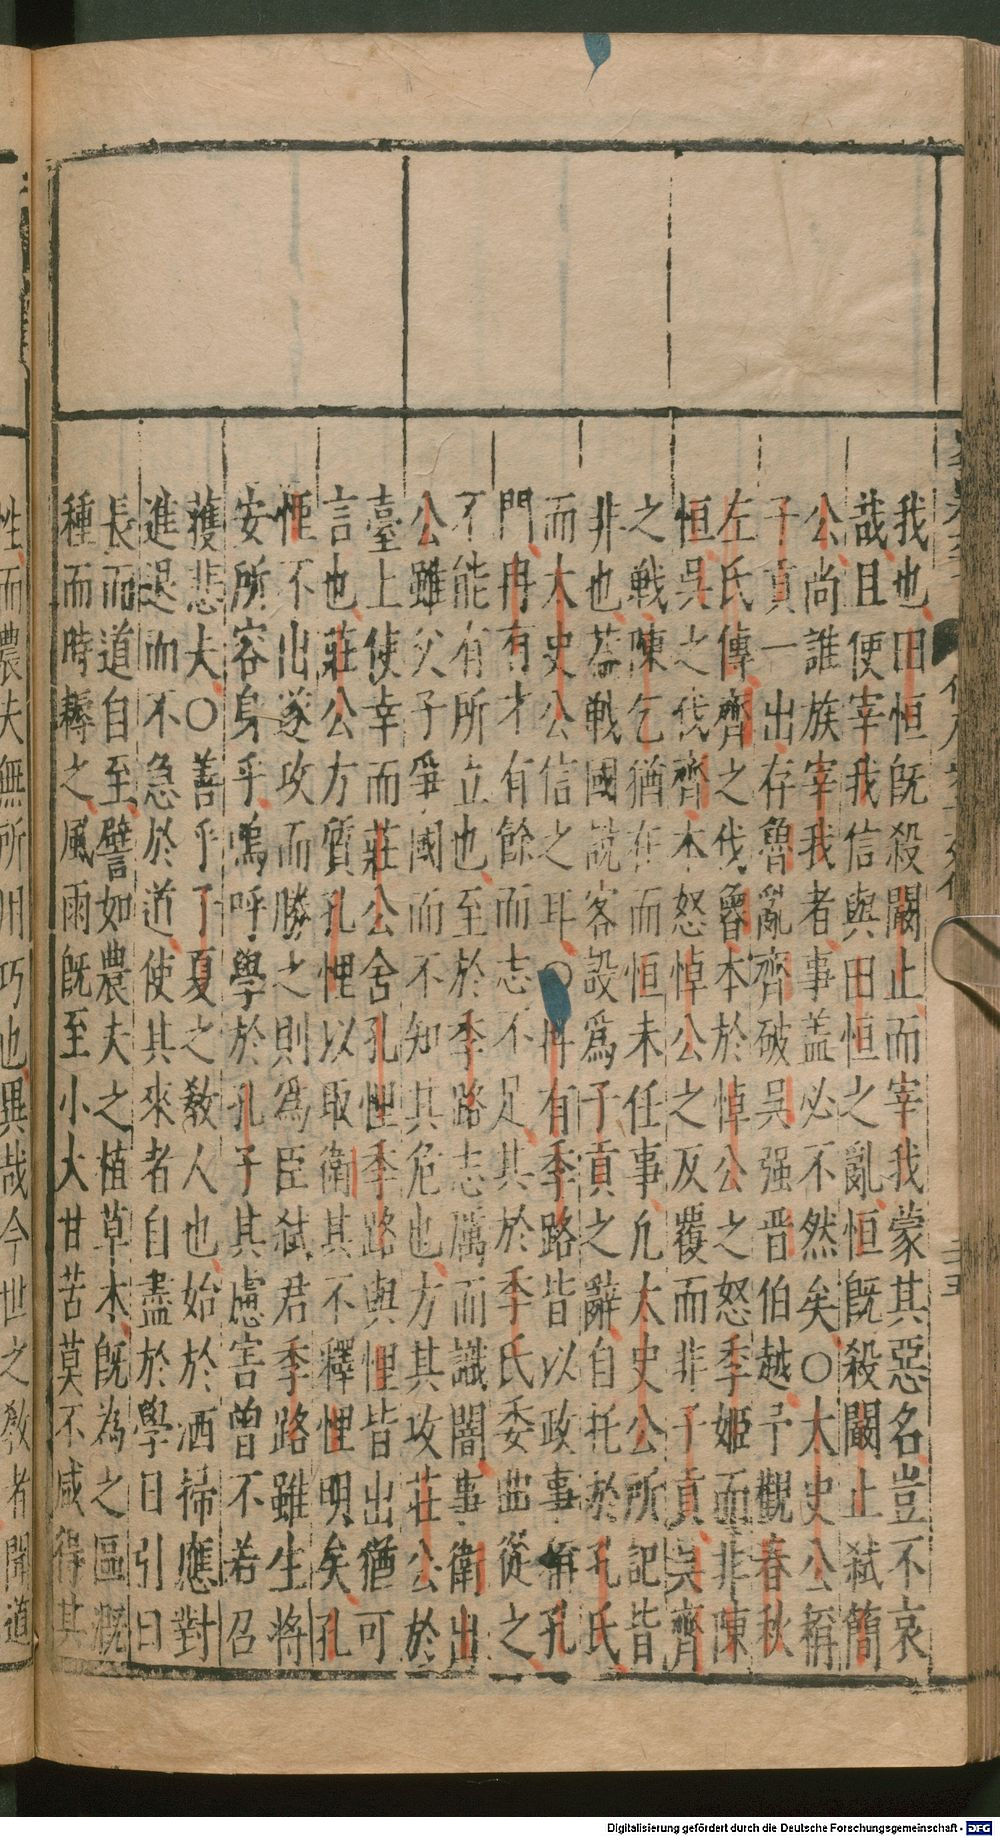 我也田恒既殺闞止而宰我蒙其惡名豈不哀
哉且使宰我信與田恒之亂恒既殺闞止弑簡
公尚誰族宰我者事盖必不然矣〇大史公稱
子貢一出存魯亂齊破吳强晋伯越予觀春秋
左氏傳齊之伐魯本於悼公之怒季姬而非陳
恒吳之伐齊本怒悼公之反覆而非子貢吳齊
之戰陳乞猶在而恒未任事凢太史公所記皆
非也葢戰國說客設爲子貢之辭自托於孔氏
而太史公信之耳〇冉有季路皆以政事稱孔
門冉有才有餘而志不足其於季氏委曲從之
不能有所立也至於季路志厲而識闇事衛出
公雖父子爭國而不知其危也方其攻莊公於
臺上使幸而莊公舍孔悝季路與悝皆出猶可
言也莊公方質孔悝以取衛其不釋悝明矣孔
悝不出遂攻而勝之則爲臣弑君季路雖生將
安所容身乎嗚呼學於孔子其慮害曾不若召
獲悲夫〇善乎子夏之敎人也始於洒掃應對
進退而不急於道使其來者自盡於學日引日
長而道自至譬如農夫之植草木既為之區溉
種而時耨之風雨既至小大甘苦莫不咸得其
性而農夫無所用巧也異哉今世之敎者聞道
二五
Digitalisierung gefördert durch die Deutsche Forschungsgemeinschaft - DFG